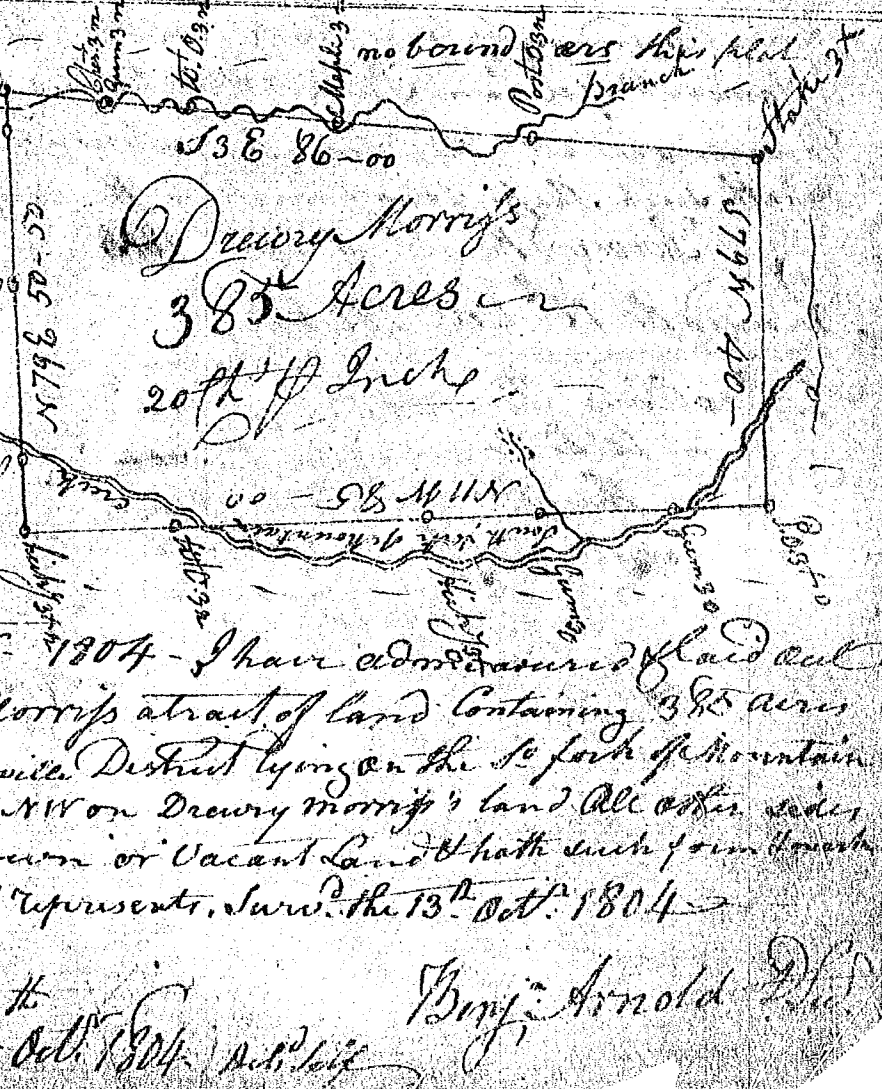 no bound ers this plat
branch
Stake 3x
Maple 3
Post O 3n
Gum 3 n
S3 E 86-00
Drewry Morriss
385 Acres
20 Ch Inch
N79 E 50-25
S79 W 40-
N11 W 85-00
South fork of Mountain
Creek
Gum 3
Gum 30
1804 - I have admeasured & laid out
Morriss a tract of land Containing 385 acres
ville District lying on the So fork of Mountain
NW on Drewry Morriss's land All other sides
or Vacant Land & hath such form & marks
represents. Survd. the 13th Octr. 1804
Benj: Arnold D.S.
th
Octr. 1804